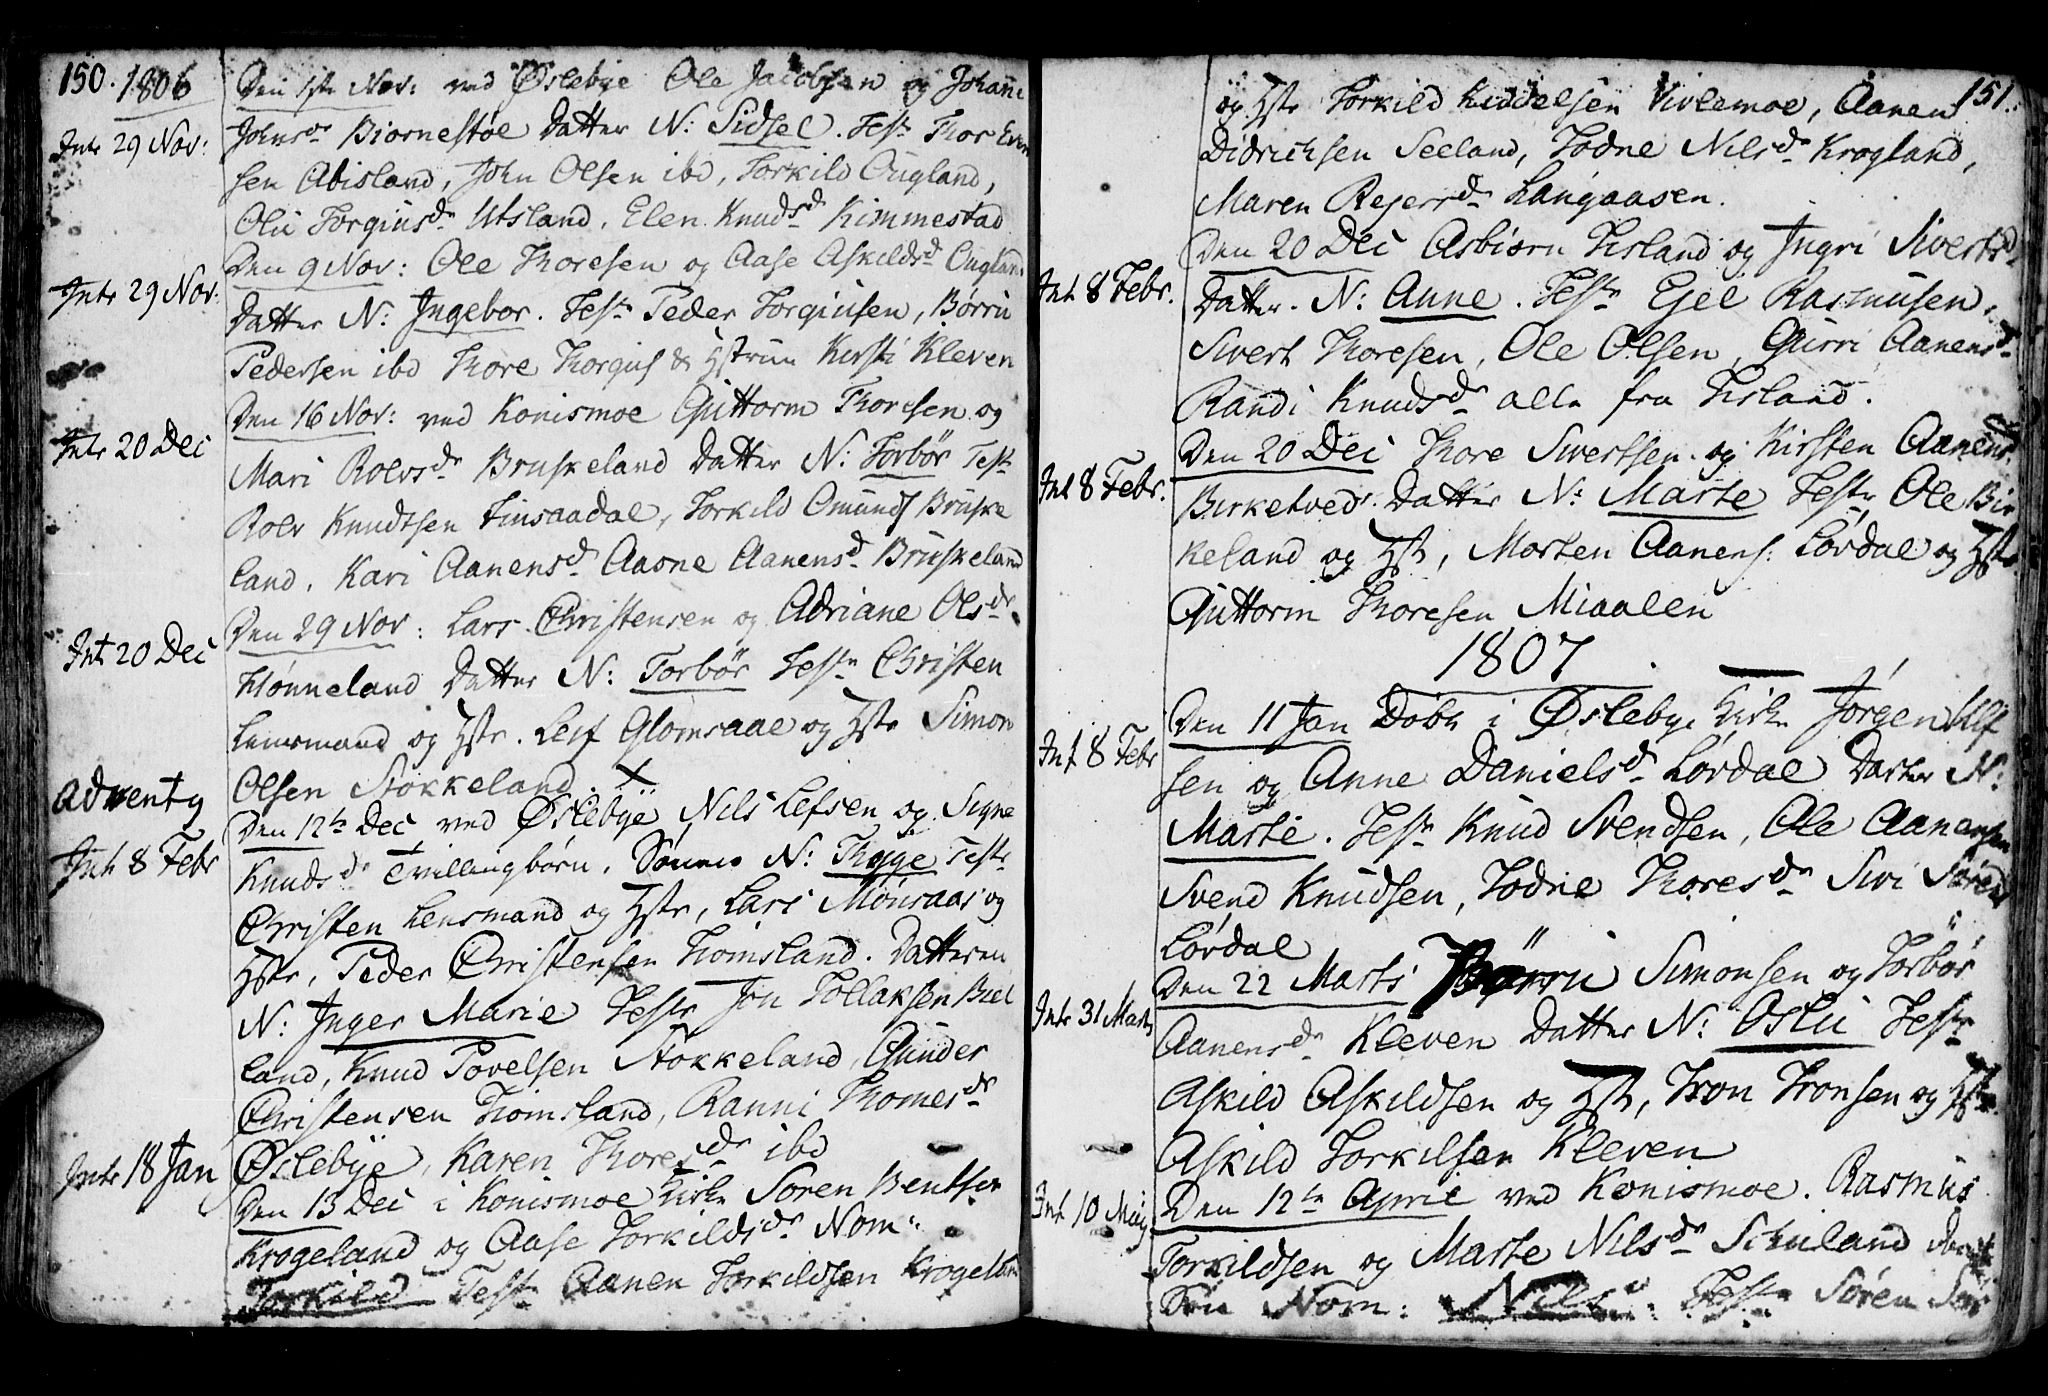 150. 1806
Den 1ste Nov: ved Øslebye Ole Jacobsen og Johane
Intr 29 Nov:
Johnsdr Biornestøe Datter N: Sidsel. Testr Thor Even
sen Abisland, John Olsen ibd, Torkild Ougland,
Oli Torgiusdr Utsland. Elen Knudsd Kimmestad
Den 9 Nov: Ole Thoresen og Aase Askildsd Ougland
Intr 29 Nov:
Datter N: Ingebor. Testr Peder Torgiusen, Børru
Pedersen ibd Thore Thorgius & Hstruu Kirsti Kleven
Den 16 Nov: ved Konismoe Guttorm Thoresen og
Intr 20 Dec
Mari Rolvsdr Bruskeland Datter N: Torbør Testr
Rolv Knudtsen Finsaadal, Torkild Omunds Bruske
land. Kari Aanensd Aasne Aanensd Bruskeland
Den 29 Nov: Lars Christensen og Adriane Olsdr
Int 20 Dec
Hønneland Datter N: Torbør Testr Christen
Lensmand og Hstr. Leif Glomsaae og Hstr Simon
Olsen Stokkeland.
Adventy
Den 12te Dec ved Øslebye Nils Lefsen og Signe
Intr 8 Febr
Knudsdr Tvillingbørn. Sønnen N: Thyge Testr
Christen Lensmand og Hstr, Lars Mønsaas og
Hstr, Peder Christensen Homsland. Datteren
N: Inger Marie Testr Jon Tollaksen Bie
land, Knud Povelsen Stokkeland, Gunder
Christensen Homsland, Ranni Thomesdr
Øslebye, Karen Thoresdr ibd
Intr 18 Jan
Den 13 Dec i Konismoe Kirke Søren Bentsen
Krogeland og Aase Torkildsdr Nom:
Torkild Testr Aanen Torkildsen Krogeland
151.
og Hstr Torkild Kiddelsen Vivlemoe, Aanen
Didrichsen Seeland, Todne Nilsdr Krogland,
Maren Rejersdr Langaasen.
Den 20 Dec Asbiørn Tisland og Ingri Sivertsd
Int 8 Febr.
Datter. N: Anne. Testr Egel Rasmusen,
Sivert Thoresen, Ole Olsen, Gurri Aanensdr
Randi Knudsdr alle fra Tisland.
Den 20 Dec Thore Sivertsen og Kirsten Aanensd
Int 8 Febr.
Birketved. Datter N: Marte Testr Ole Bir
keland og Hstr, Morten Aanens: Lørdal og Hstr
Guttorm Thoresen Miaalen
1807
Den 11 Jan Døbt i Øslebye Kirke Jørgen Ulf
Int 8 Febr
sen og Anne Danielsdr Lørdal Datter N:
Marte. Testr Knud Svendsen, Ole Aanensen
Svend Knudsen, Todne Thoresdr Sivi Sørensd
Lørdal
Den 22 Marts Børru Simonsen og Torbør
Intr 31 Marts
Aanensdr Kleven Datter N: Osli Testr
Askild Askildsen og Hstr, Tron Tronsen og Hstr
Askild Torkilsen Kleven
Den 12te April ved Konismoe. Rasmus
Intr 10 Maij
Torkildsen og Marte Nilsdr Schuland
Søn Nom: Nils: Testr Søren